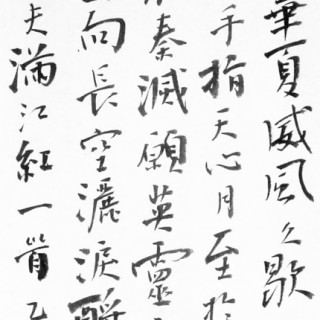 華夏威風久歇
手指天心月至於
秦滅願英靈
向長空灑淚酹
夫滿江紅一首乙